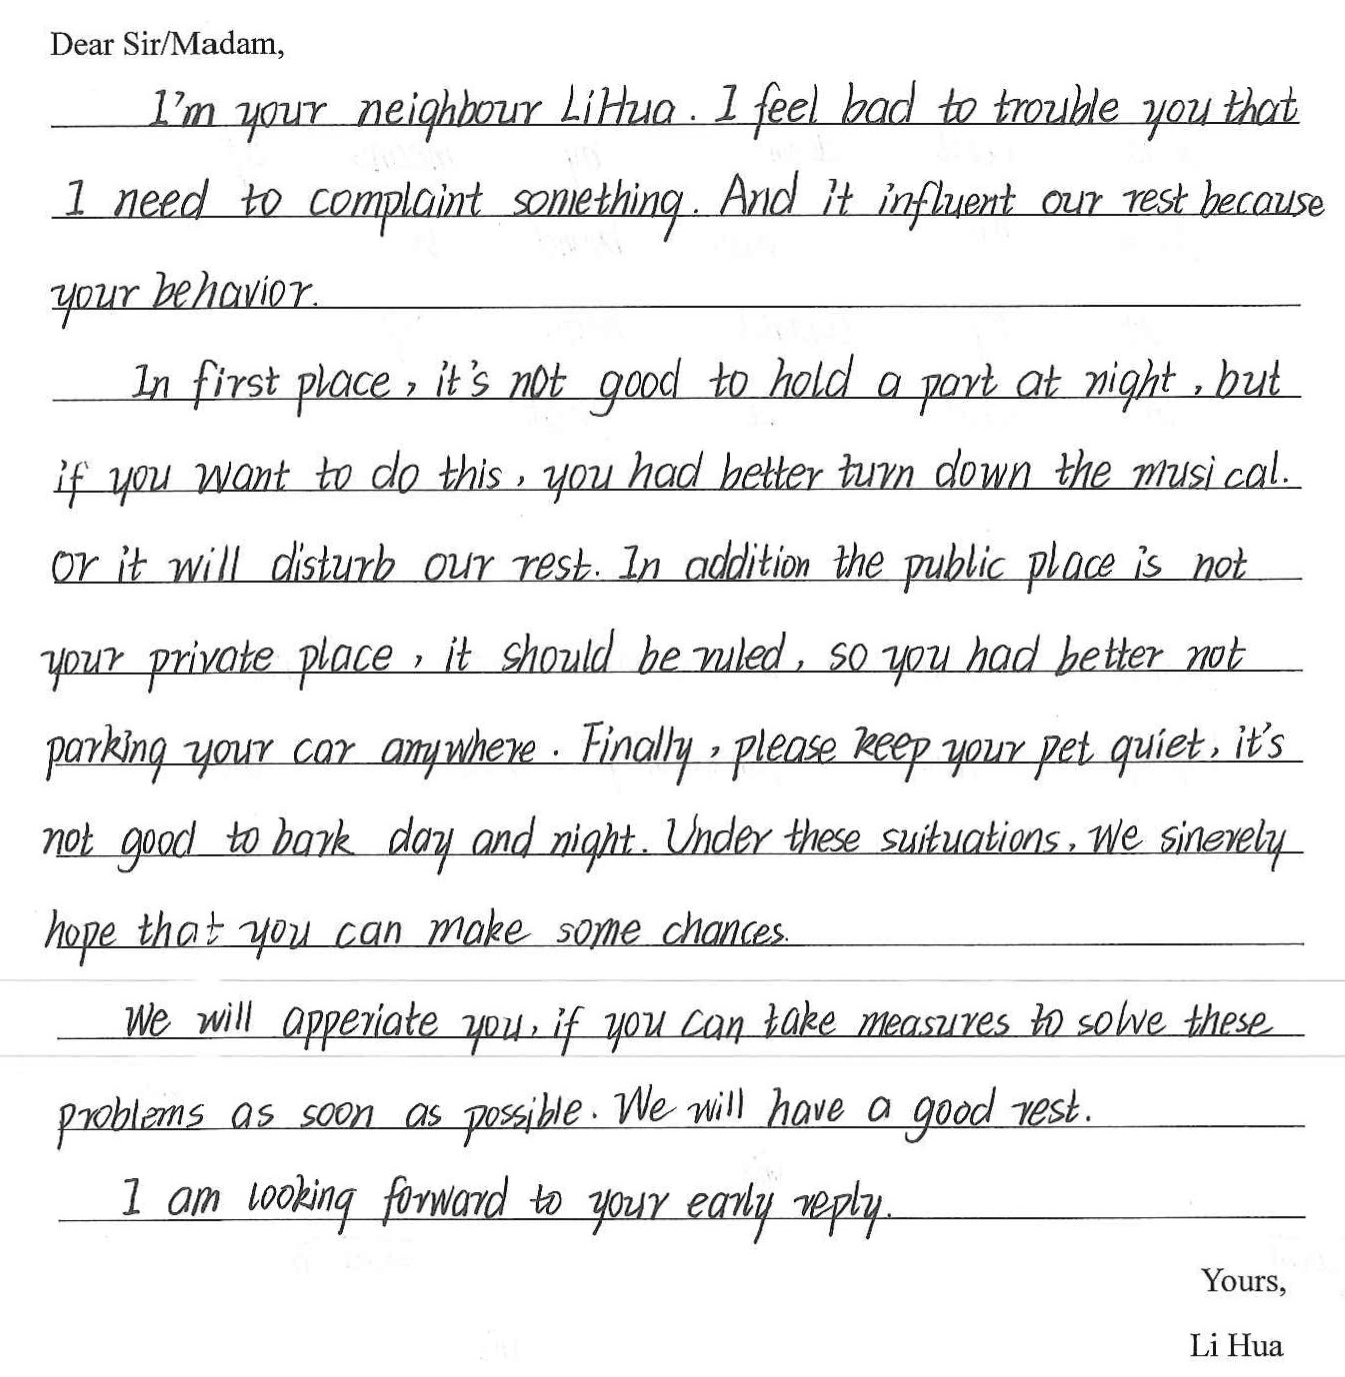 Dear Sir/Madam,
I'm your neighbour LiHua. I feel bad to trouble you that
I need to complaint something. And it influent our rest because
your behavior.
In first place, it's not good to hold a part at night, but
if you want to do this, you had better turn down the musical.
or it will disturb our rest. In addition the public place is not
your private place, it should be ruled, so you had better not
parking your car anywhere. Finally, please keep your pet quiet, it's
not good to bark day and night. Under these suituations, we sinerely
hope that you can make some chances.
We will apperiate you, if you can take measures to solve these
problems as soon as possible. We will have a good rest.
I am looking forward to your early reply.
Yours,
Li Hua